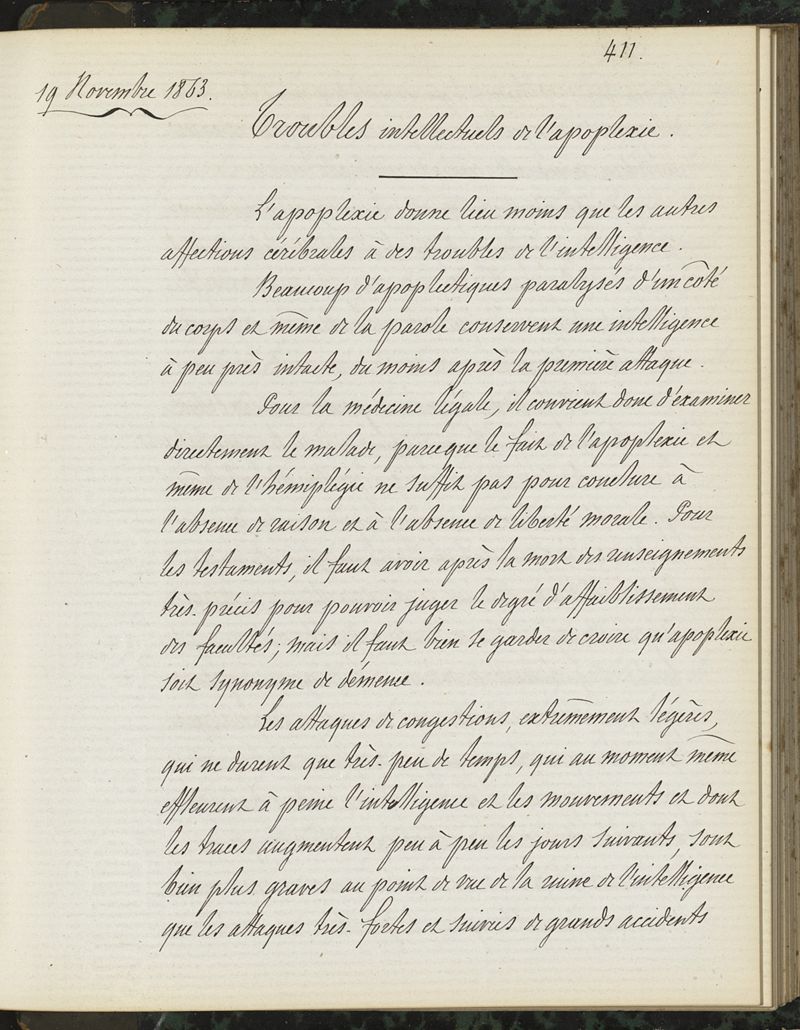 411.
19 Novembre 1863.
Troubles intellectuels de l'apoplexie.
L'apoplexie donne lieu moins que les autres
affections cérébrales à des troubles de l'intelligence.
Beaucoup d'apoplectiques paralysés d'un côté
du corps et même de la parole conservent une intelligence
à peu près intacte, du moins après la première attaque.
Pour la médecine légale, il convient donc d'examiner
directement le malade, parce que le fait de l'apoplexie et
même de l'hémiplégie ne suffit pas pour conclure à
l'absence de raison et à l'absence de liberté morale. Pour
les testaments, il faut avoir après la mort des renseignements
très-précis pour pouvoir juger le degré d'affaiblissement
des facultés; mais il faut bien se garder de croire qu'apoplexie
soit synonyme de démence.
Les attaques de congestions, extrêmement légères,
qui ne durent que très-peu de temps, qui au moment même
effleurent à peine l'intelligence et les mouvements et dont
les traces augmentent peu à peu les jours suivants, sont
bien plus graves au point de vue de la ruine de l'intelligence
que les attaques très-fortes et suivies de grands accidents